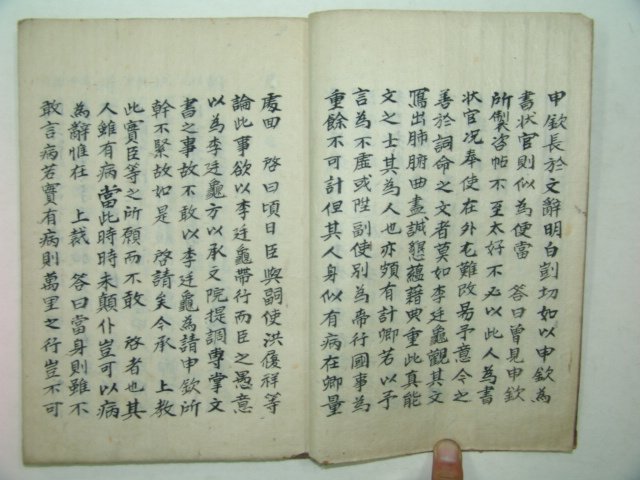 申欽長於文辭明白剴切如以申欽為
書狀官則似為便當 答曰曾見申欽
所製咨帖不至太好不必以此人為書
狀官况奉使在外尤難改易予意今之
善於詞命之文者莫如李廷龜觀其文
寫出肺腑曲盡誠懇蘊藉典重此真能
文之士其為人也亦頗有計卿若以予
言為不虛或陞副使別為帶行國事為
重餘不可計但其人身似有病在卿量
處回 啓曰頃日臣與副使洪履祥等
論此事欲以李廷龜帶行而臣之愚意
以為李廷龜方以承文院提調專掌文
書之事故不敢以李廷龜為請申欽所
幹不緊故如是 啓請矣今承 上教
此實臣等之所願而不敢 啓者也其
人雖有病當此時時未顛仆豈可以病
為辭惟在 上裁 答曰當身則雖不
敢言病若實有病則萬里之行豈不可